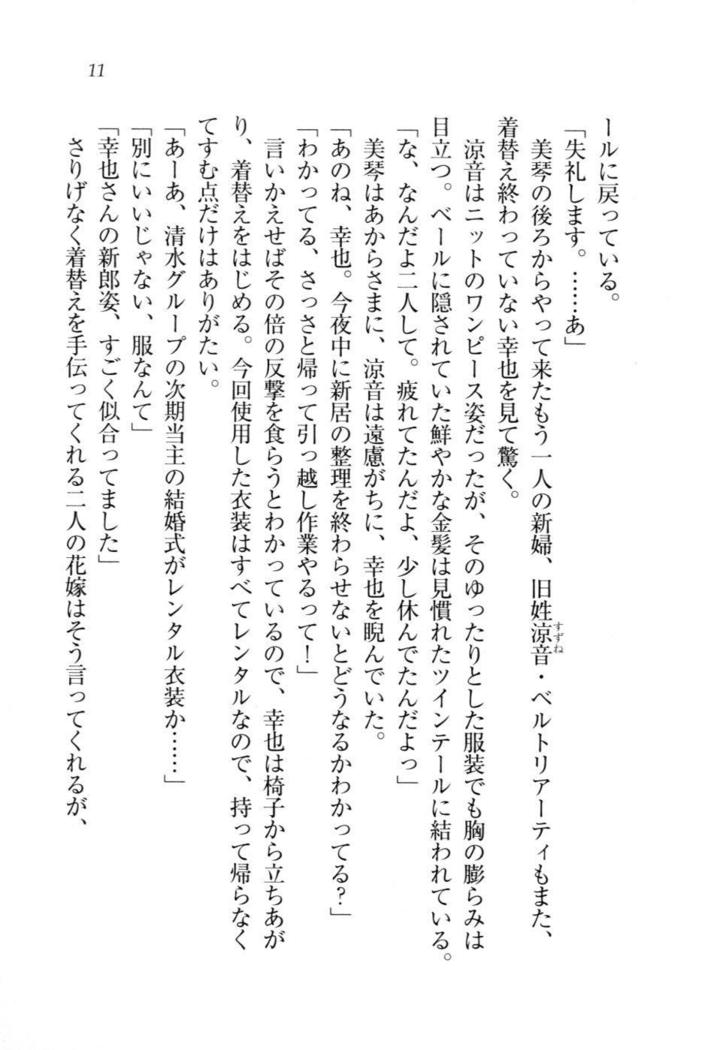 11
ールに戻っている。
「失礼します。……あ」
美琴の後ろからやって来たもう一人の新婦、旧姓涼音・ベルトリアーティもまた、
すずね
着替え終わっていない幸也を見て驚く。
涼音はニットのワンピース姿だったが、そのゆったりとした服装でも胸の膨らみは
目立つ。ベールに隠されていた鮮やかな金髪は見慣れたツインテールに結われている。
「な、なんだよ二人して。疲れてたんだよ、少し休んでたんだよっ」
美琴はあからさまに、涼音は遠慮がちに、幸也を睨んでいた。
「あのね、幸也。今夜中に新居の整理を終わらせないとどうなるかわかってる?」
「わかってる、さっさと帰って引っ越し作業やるって!」
言いかえせばその倍の反撃を食らうとわかっているので、幸也は椅子から立ちあが
り、着替えをはじめる。今回使用した衣装はすべてレンタルなので、持って帰らなく
てすむ点だけはありがたい。
「あーあ、清水グループの次期当主の結婚式がレンタル衣装か……」
「別にいいじゃない、服なんて」
「幸也さんの新郎姿、すごく似合ってました」
さりげなく着替えを手伝ってくれる二人の花嫁はそう言ってくれるが、